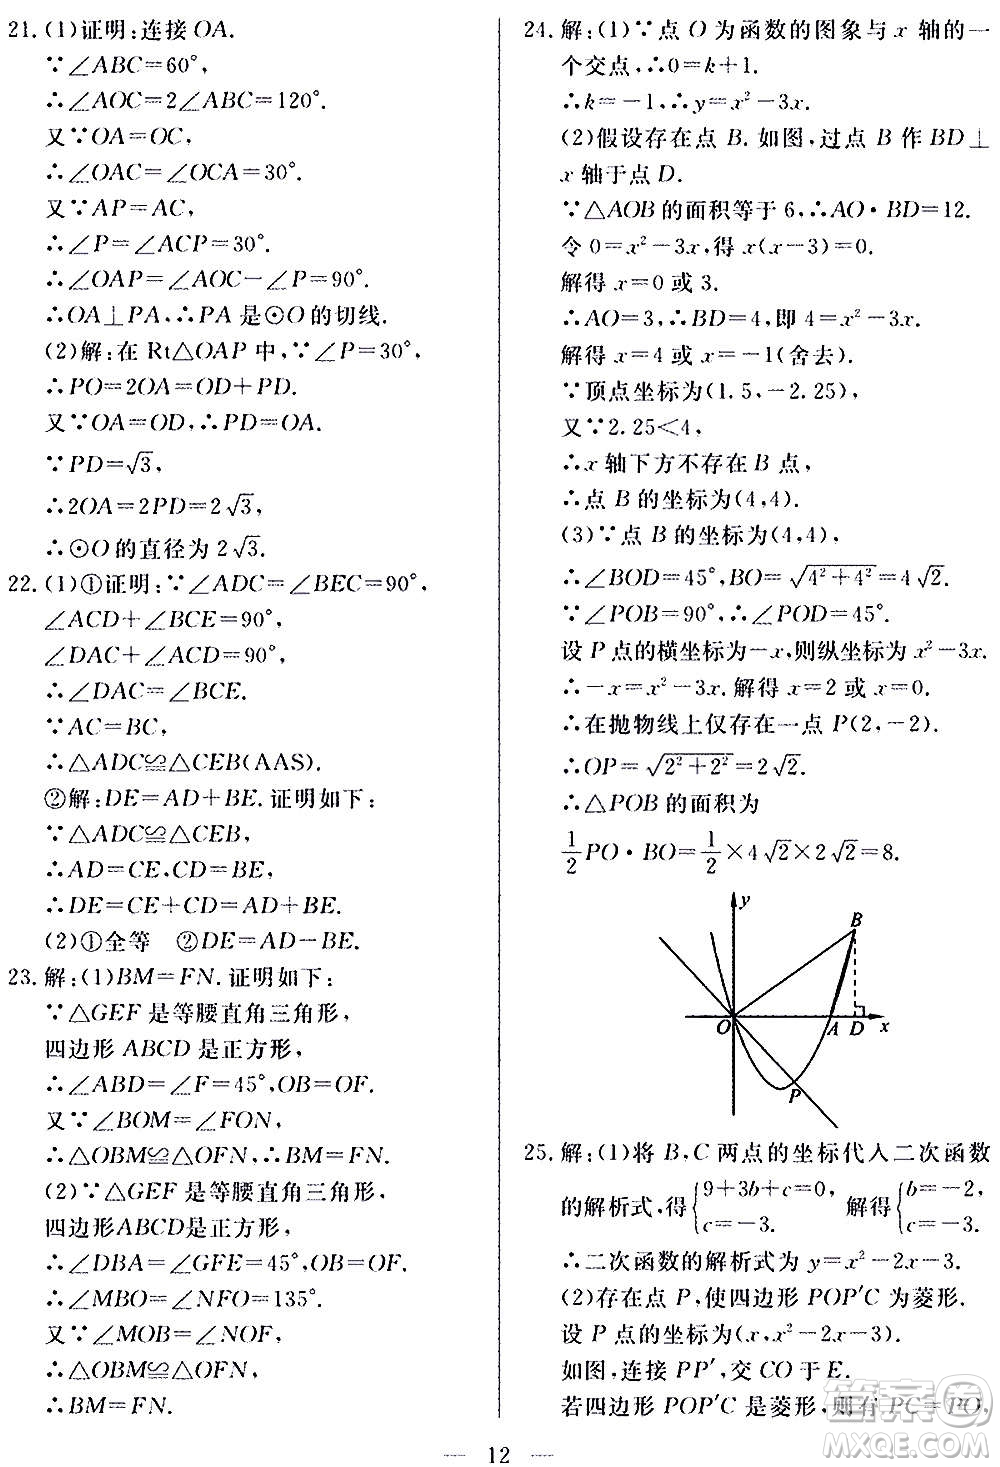 21. (1)证明:连接 OA.
∵∠ABC=60°,
∴∠AOC=2∠ABC=120°.
又∵OA=OC,
∴∠OAC=∠OCA=30°.
又∵AP=AC,
∴∠P=∠ACP=30°.
∴∠OAP=∠AOC-∠P=90°.
∴OA⊥PA,∴PA 是⊙O 的切线.
(2)解:在 Rt△OAP 中,∵∠P=30°,
∴PO=2OA=OD+PD.
又∵OA=OD,∴PD=OA.
∵PD=√3,
∴2OA=2PD=2√3.
∴⊙O 的直径为 2√3.
22. (1)①证明:∵∠ADC=∠BEC=90°,
∠ACD+∠BCE=90°,
∠DAC+∠ACD=90°,
∴∠DAC=∠BCE.
∵AC=BC,
∴△ADC≌△CEB(AAS).
②解:DE=AD+BE.证明如下:
∵△ADC≌△CEB,
∴AD=CE,CD=BE.
∴DE=CE+CD=AD+BE.
(2)①全等 ②DE=AD-BE.
23. 解:(1)BM=FN.证明如下:
∵△GEF 是等腰直角三角形,
四边形 ABCD 是正方形,
∴∠ABD=∠F=45°,OB=OF.
又∵∠BOM=∠FON,
∴△OBM≌△OFN,∴BM=FN.
(2)∵△GEF 是等腰直角三角形,
四边形ABCD是正方形,
∴∠DBA=∠GFE=45°,OB=OF.
∴∠MBO=∠NFO=135°.
又∵∠MOB=∠NOF,
∴△OBM≌△OFN.
∴BM=FN.
24. 解:(1)∵点 O 为函数的图象与 x 轴的一
个交点,∴0=k+1.
∴k=-1,∴y=x²-3x.
(2)假设存在点 B. 如图,过点 B 作 BD⊥
x 轴于点 D.
∵△AOB 的面积等于 6,∴AO·BD=12.
令 0=x²-3x,得 x(x-3)=0.
解得 x=0 或 3.
∴AO=3,∴BD=4,即 4=x²-3x.
解得 x=4 或 x=-1(舍去).
∵顶点坐标为(1.5,-2.25),
又∵2.25<4,
∴x 轴下方不存在 B 点,
∴点 B 的坐标为(4,4).
(3)∵点 B 的坐标为(4,4),
∴∠BOD=45°,BO=√(4²+4²)=4√2.
∵∠POB=90°,∴∠POD=45°.
设 P 点的横坐标为-x,则纵坐标为 x²-3x.
∴-x=x²-3x. 解得 x=2 或 x=0.
∴在抛物线上仅存在一点 P(2,-2).
∴OP=√(2²+2²)=2√2.
∴△POB 的面积为
1/2 PO·BO=1/2×4√2×2√2=8.
y
B
O
A
D
x
P
25. 解:(1)将 B,C 两点的坐标代入二次函数
的解析式,得{9+3b+c=0, c=-3. 解得{b=-2, c=-3.
∴二次函数的解析式为 y=x²-2x-3.
(2)存在点 P,使四边形 POP′C 为菱形.
设 P 点的坐标为(x,x²-2x-3).
如图,连接 PP′,交 CO 于 E.
若四边形 POP′C 是菱形,则有 PC=PO,
答案圈
MXQE.COM
12